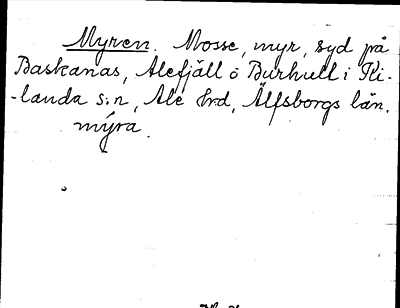 Myren. Mosse, myr, syd på
Baskanas, Alefjäll o Burhult i Ki-
-landa s:n, Ale hrd, Älfsborgs län.
mýra.